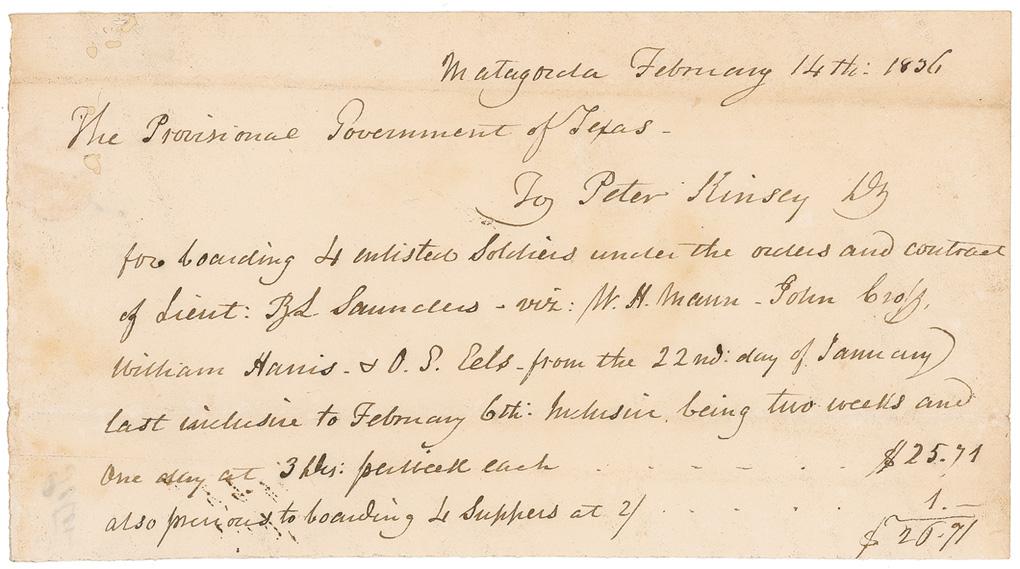 Matagorda February 14th: 1836
The Provisional Government of Texas -
To Peter Kinsey Dr
for boarding 4 enlisted Soldiers under the orders and contract
of Lieut: B L Saunders - viz: W. H. Mann - John Cross,
William Harris - & O. S. Eels - from the 22nd: day of January
last inclusive to February 6th: Inclusive, being two weeks and
One day at 3 Drs: per week each - - - - - $25.71
also previous to boarding 4 Suppers at 2/ . . . . . 1.—
$26.71